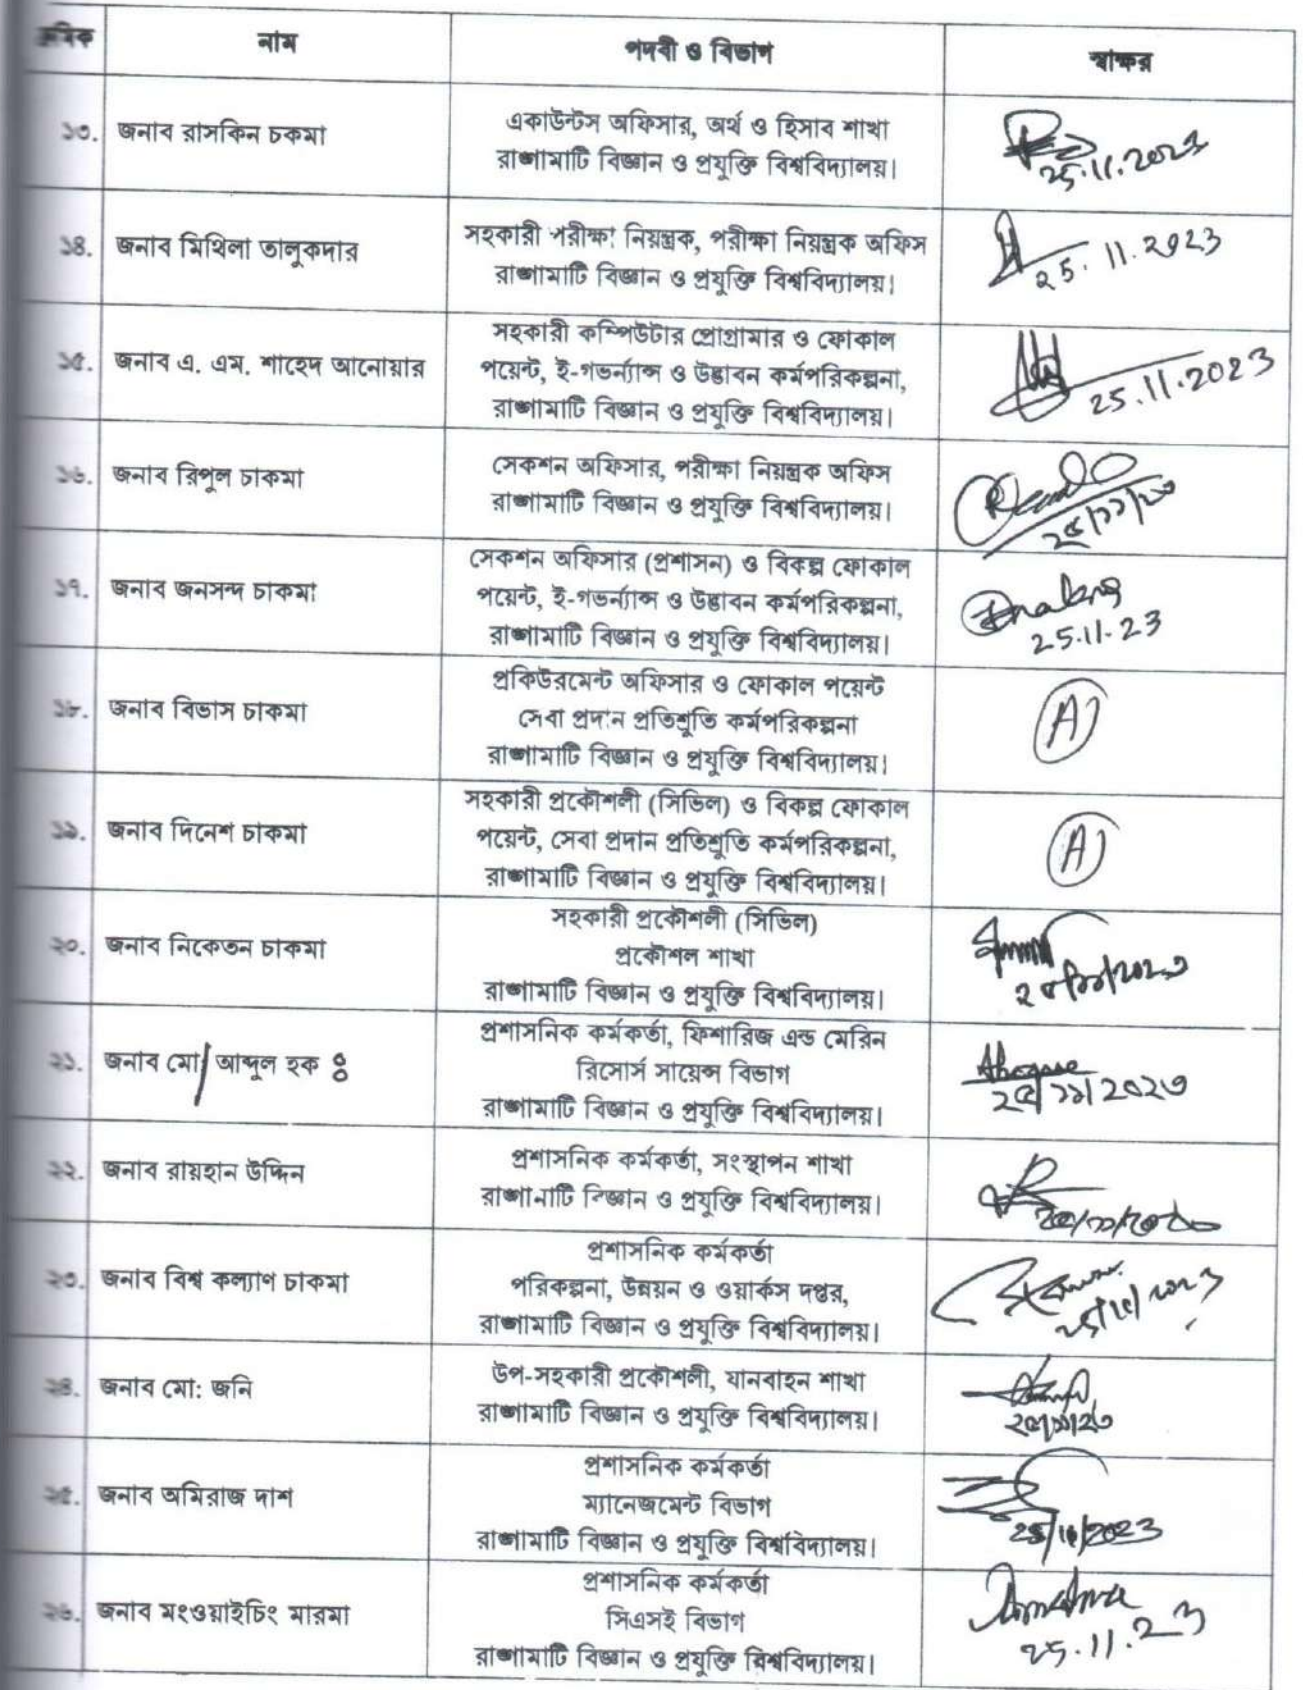 ক্রমিক নাম পদবী ও বিভাগ স্বাক্ষর
১৩. জনাব রাসকিন চকমা
একাউন্টস অফিসার, অর্থ ও হিসাব শাখা
রাঙ্গামাটি বিজ্ঞান ও প্রযুক্তি বিশ্ববিদ্যালয়।
25.11.2023
১৪. জনাব মিথিলা তালুকদার
সহকারী পরীক্ষা নিয়ন্ত্রক, পরীক্ষা নিয়ন্ত্রক অফিস
রাঙ্গামাটি বিজ্ঞান ও প্রযুক্তি বিশ্ববিদ্যালয়।
25.11.2023
১৫. জনাব এ. এম. শাহেদ আনোয়ার
সহকারী কম্পিউটার প্রোগ্রামার ও ফোকাল
পয়েন্ট, ই-গভর্ন্যান্স ও উদ্ভাবন কর্মপরিকল্পনা,
রাঙ্গামাটি বিজ্ঞান ও প্রযুক্তি বিশ্ববিদ্যালয়।
25.11.2023
১৬. জনাব রিপুল চাকমা
সেকশন অফিসার, পরীক্ষা নিয়ন্ত্রক অফিস
রাঙ্গামাটি বিজ্ঞান ও প্রযুক্তি বিশ্ববিদ্যালয়।
২৫/১১/২৩
১৭. জনাব জনসন্দ চাকমা
সেকশন অফিসার (প্রশাসন) ও বিকল্প ফোকাল
পয়েন্ট, ই-গভর্ন্যান্স ও উদ্ভাবন কর্মপরিকল্পনা,
রাঙ্গামাটি বিজ্ঞান ও প্রযুক্তি বিশ্ববিদ্যালয়।
25.11.23
১৮. জনাব বিভাস চাকমা
প্রকিউরমেন্ট অফিসার ও ফোকাল পয়েন্ট
সেবা প্রদান প্রতিশ্রুতি কর্মপরিকল্পনা
রাঙ্গামাটি বিজ্ঞান ও প্রযুক্তি বিশ্ববিদ্যালয়।
A
১৯. জনাব দিনেশ চাকমা
সহকারী প্রকৌশলী (সিভিল) ও বিকল্প ফোকাল
পয়েন্ট, সেবা প্রদান প্রতিশ্রুতি কর্মপরিকল্পনা,
রাঙ্গামাটি বিজ্ঞান ও প্রযুক্তি বিশ্ববিদ্যালয়।
A
২০. জনাব নিকেতন চাকমা
সহকারী প্রকৌশলী (সিভিল)
প্রকৌশল শাখা
রাঙ্গামাটি বিজ্ঞান ও প্রযুক্তি বিশ্ববিদ্যালয়।
২৫/১১/২০২৩
২১. জনাব মো/ আব্দুল হক ঃ
প্রশাসনিক কর্মকর্তা, ফিশারিজ এন্ড মেরিন
রিসোর্স সায়েন্স বিভাগ
রাঙ্গামাটি বিজ্ঞান ও প্রযুক্তি বিশ্ববিদ্যালয়।
Ahoque
২৫/১১/২০২৩
২২. জনাব রায়হান উদ্দিন
প্রশাসনিক কর্মকর্তা, সংস্থাপন শাখা
রাঙ্গামাটি বিজ্ঞান ও প্রযুক্তি বিশ্ববিদ্যালয়।
২৫/১১/২০২৩
২৩. জনাব বিশ্ব কল্যাণ চাকমা
প্রশাসনিক কর্মকর্তা
পরিকল্পনা, উন্নয়ন ও ওয়ার্কস দপ্তর,
রাঙ্গামাটি বিজ্ঞান ও প্রযুক্তি বিশ্ববিদ্যালয়।
25/11/2023
২৪. জনাব মো: জনি
উপ-সহকারী প্রকৌশলী, যানবাহন শাখা
রাঙ্গামাটি বিজ্ঞান ও প্রযুক্তি বিশ্ববিদ্যালয়।
২৫/১১/২৩
২৫. জনাব অমিরাজ দাশ
প্রশাসনিক কর্মকর্তা
ম্যানেজমেন্ট বিভাগ
রাঙ্গামাটি বিজ্ঞান ও প্রযুক্তি বিশ্ববিদ্যালয়।
25/11/2023
২৬. জনাব মংওয়াইচিং মারমা
প্রশাসনিক কর্মকর্তা
সিএসই বিভাগ
রাঙ্গামাটি বিজ্ঞান ও প্রযুক্তি বিশ্ববিদ্যালয়।
25.11.23